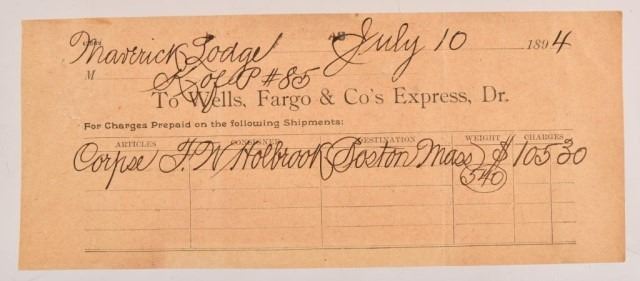 Maverick Lodge July 10 1894
M K of P #85
To Wells, Fargo & Co's Express, Dr.
For Charges Prepaid on the following Shipments:
ARTICLES CONSIGNEE DESTINATION WEIGHT CHARGES
Corpse F. W Holbrook Boston Mass $ 105 30
540